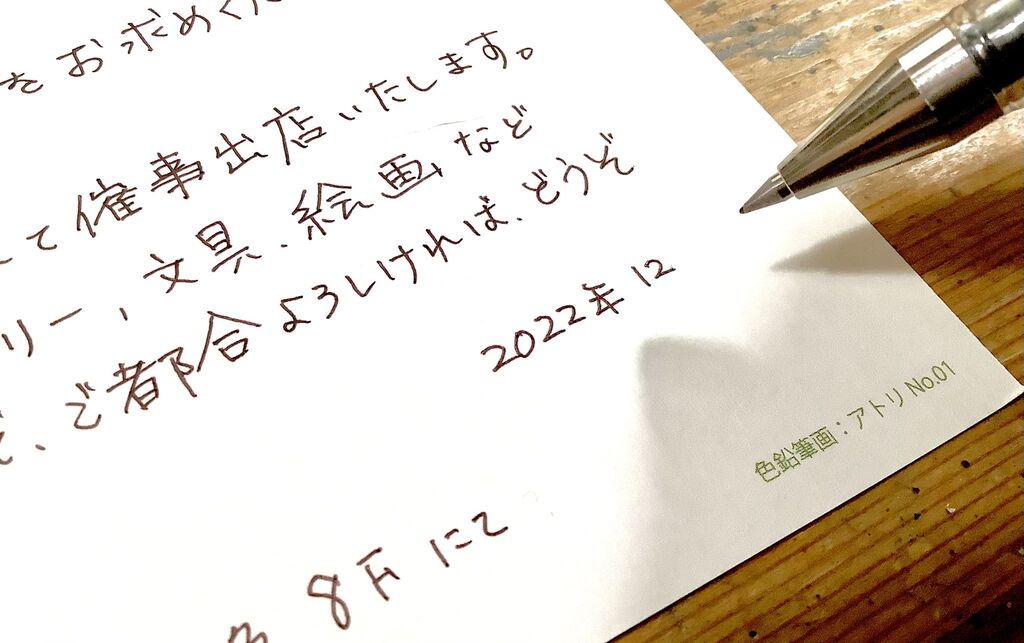 をお求めく
て催事出店いたします。
リー、文具、絵画など
、ご都合よろしければ、どうぞ
2022年12
8F にて
色鉛筆画：アトリ No.01